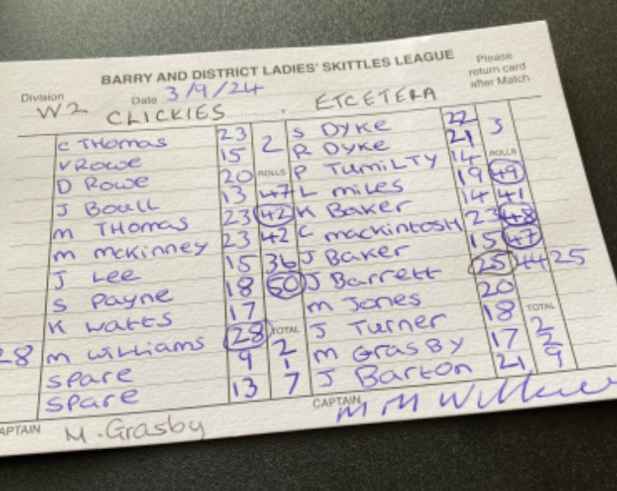 BARRY AND DISTRICT LADIES' SKITTLES LEAGUE
Please return card after Match
Division W2 Date 3/9/24
CLICKIES . ETCETERA
C THOMAS 23 2 S DYKE 22 3
V ROWE 15 R DYKE 21
D ROWE 20 ROLLS P TUMILTY 14 ROLLS
J BOULL 13 47 L MILES 19 49
M THOMAS 23 42 K BAKER 14 41
M MCKINNEY 23 42 C MACKINTOSH 23 48
J LEE 15 36 J BAKER 15 47
S PAYNE 18 50 J BARRETT 25 44 25
K WATTS 17 M JONES 20
28 M WILLIAMS 28 TOTAL J TURNER 18 TOTAL
SPARE 9 2 1 M GRASBY 17 2 2
SPARE 13 7 J BARTON 21 9
APTAIN M. Grasby CAPTAIN